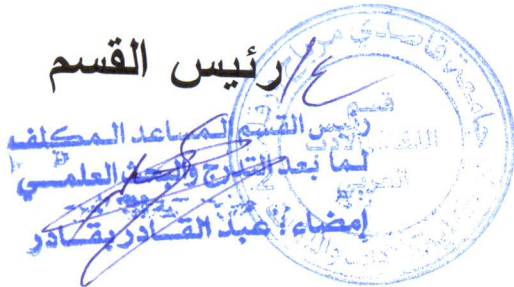 ع/رئيس القسم
رئيس القسم المساعد المكلف
لما بعد التدرج والبحث العلمي
إمضاء: عبد القادر بقادر
جامعة قاصدي مرباح
قسم
اللغة والأدب
العربي